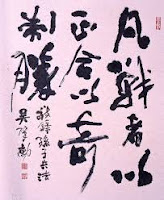 凡戰者以
正合以奇
制勝
敬錄孫子兵法
吳